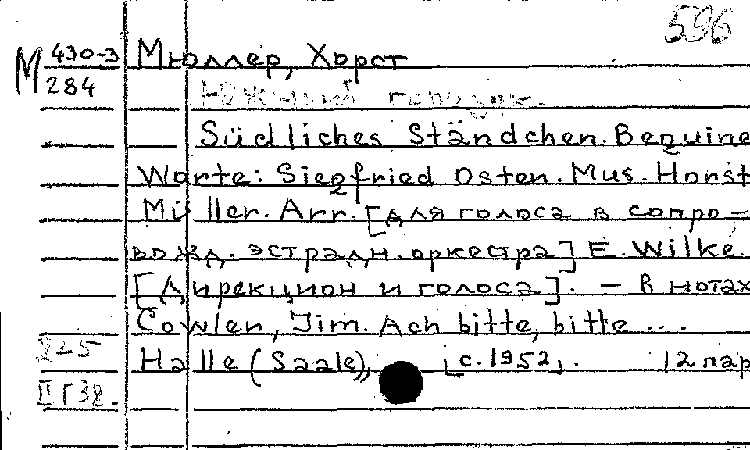 596
М 430-3 Мюллер, Хорст
284
Südliches Ständchen. Beguine
Worte: Siegfried Osten. Mus. Horst
Müller. Arr. [для голоса в сопро-
вожд. эстрадн. оркестра] E. Wilke.
[Дирекцион и голоса]. – В нотах
Cowlen, Jim. Ach bitte, bitte ...
Halle (Saale), [с. 1952]. 12 пар